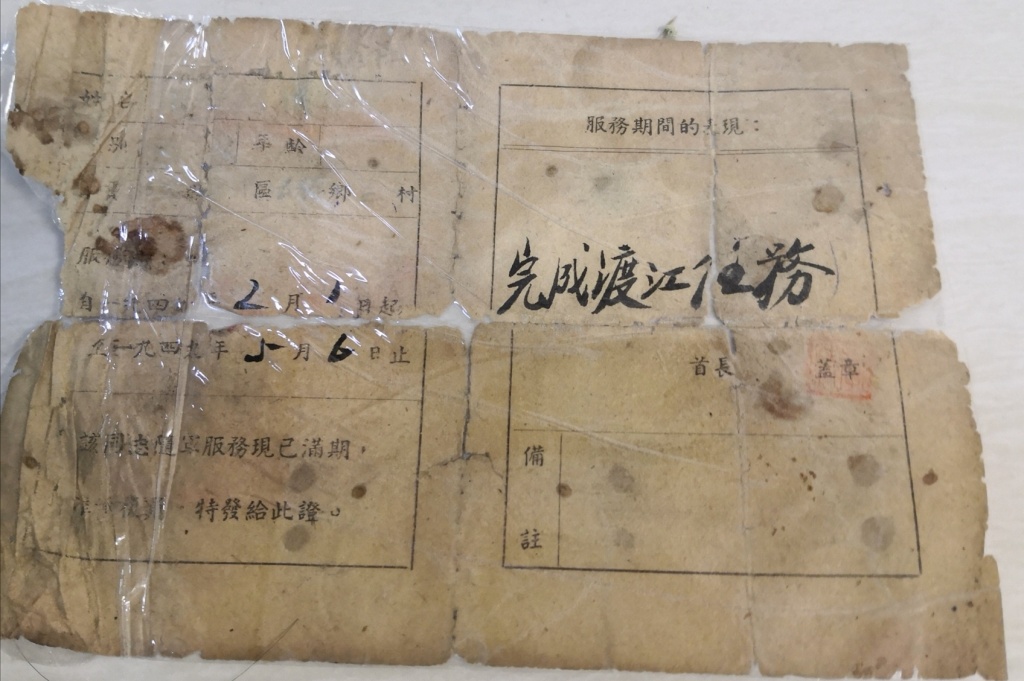 姓名
別 年齡
區 鄉 村
服
自一九四 2月1日起
至一九四九年5月6日止
該同志隨軍服務現已滿期，
特發給此證。
服務期間的表現：
完成渡江任務
首長 蓋章
備
註